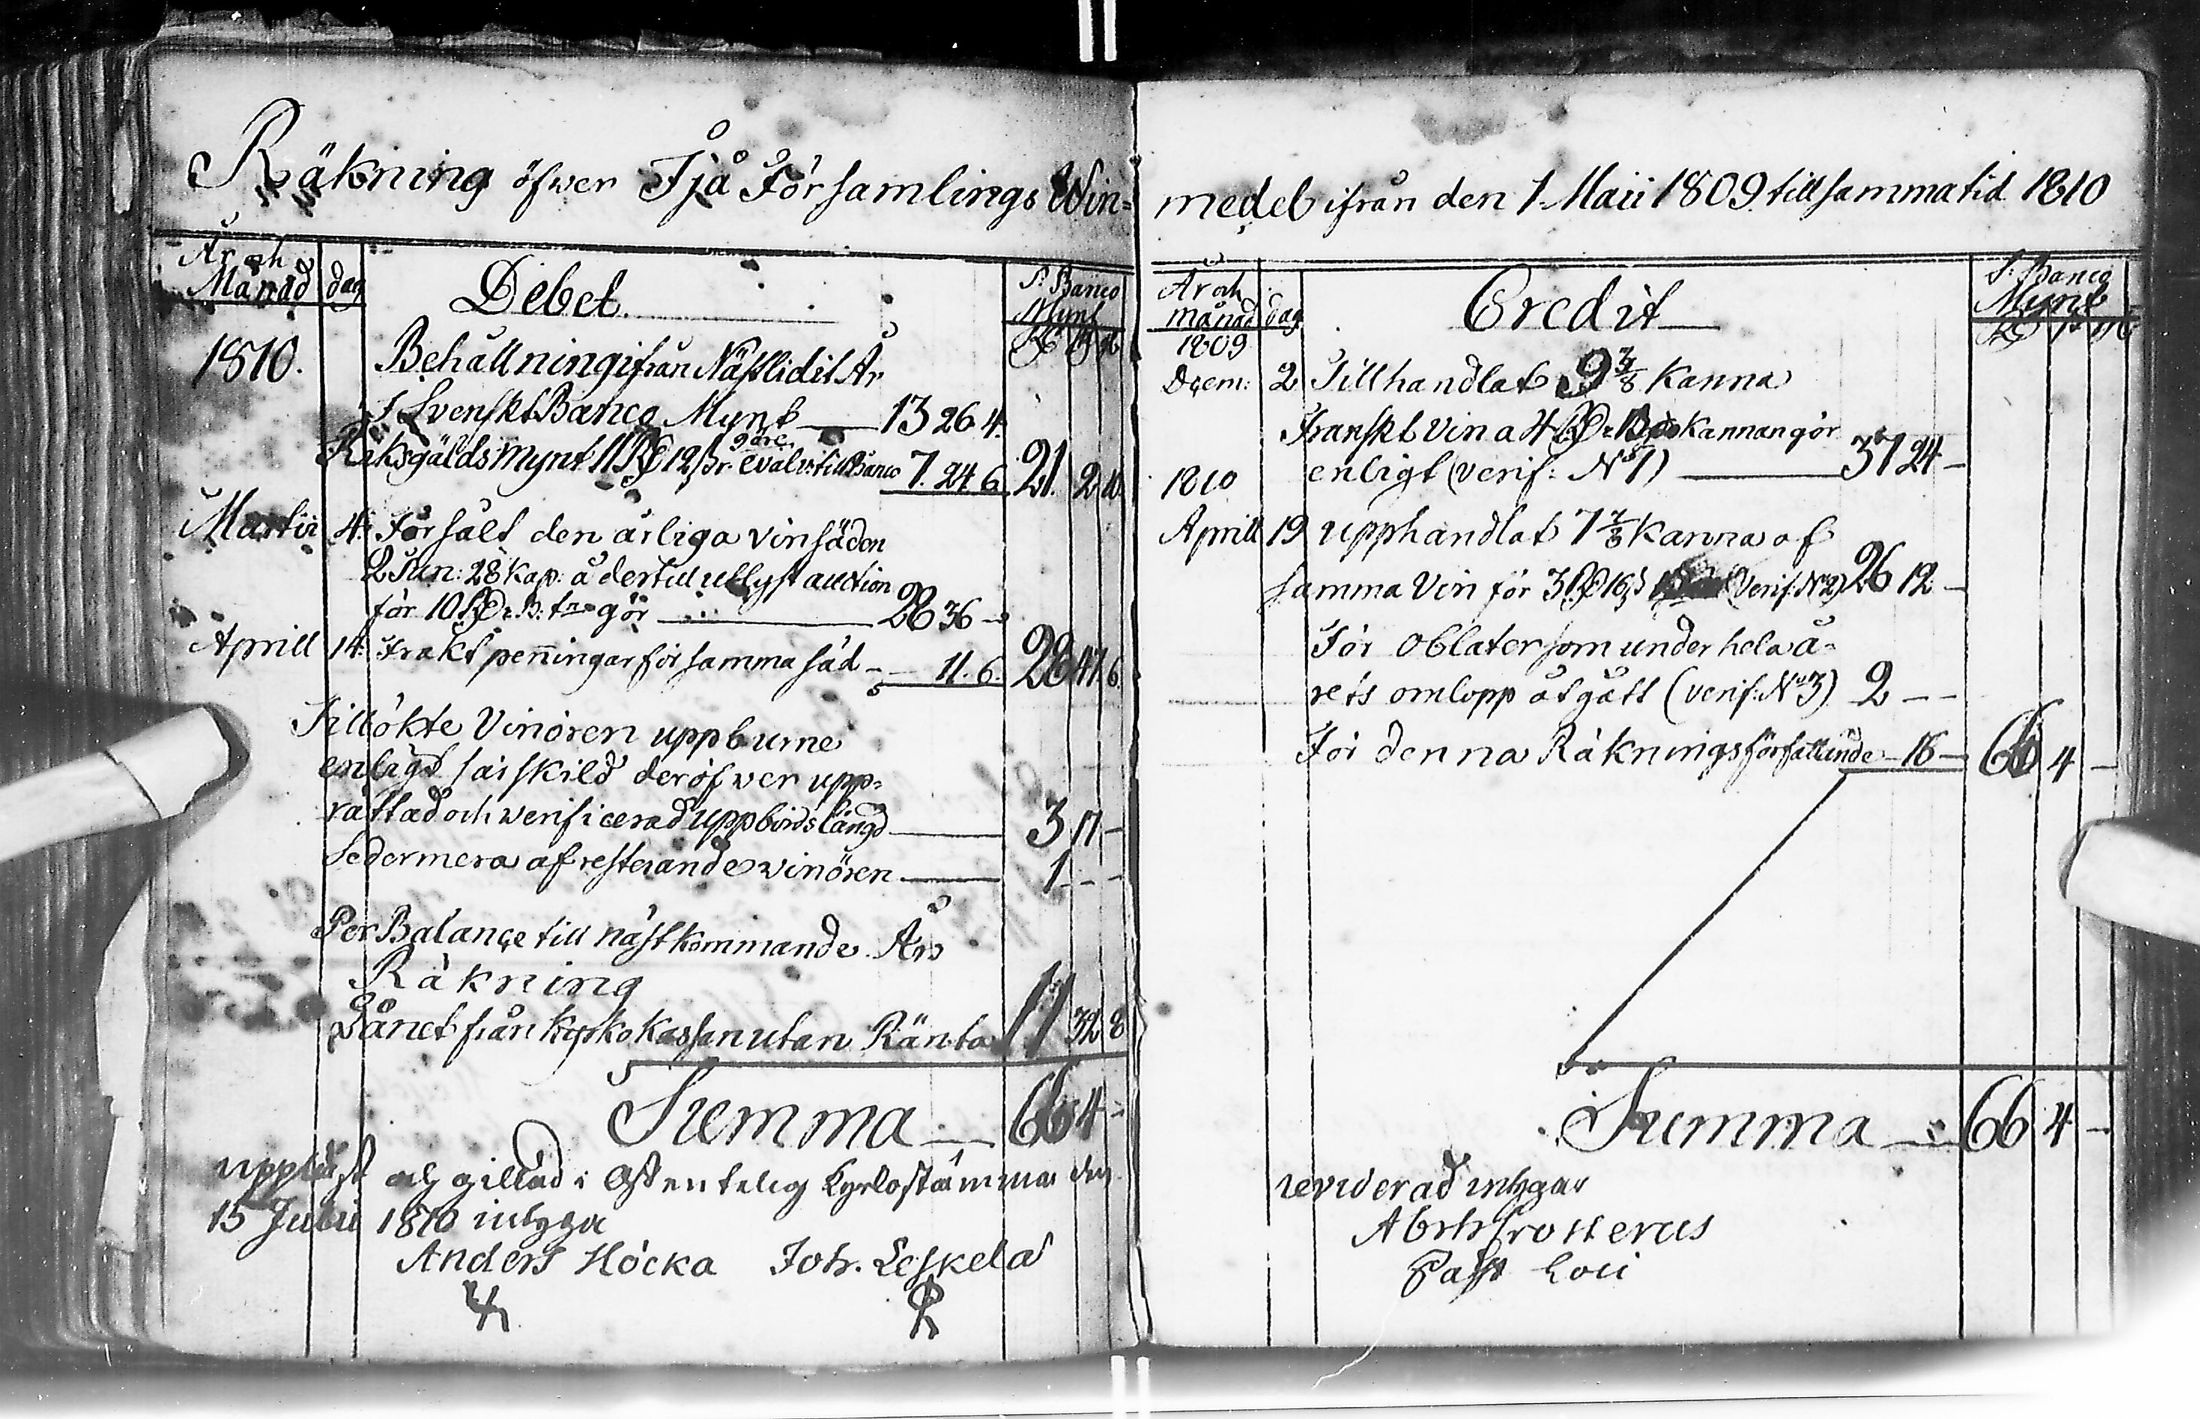 Räkning öfwer Ijå Församlings Win=
År och
Månad dag Debet. S: Banco
Mynt
1810. Behållning ifrån Nästlidit År
I Svenskt Banco Mynt 13 26 4.
Riksgälds Mynt 11 RD 12 ßr. evalv: till Banco 7. 24. 6. 21. 2 10.
Martii 4. Försält den årliga vinsäden
2 Tun: 28 kap: å dertill utlyst auction
för 10 RDr B: tn gör 28 36 -
Aprill 14. Frakt penningar för samma säd - 11. 6. 28 47. 6.
Tillökte Vinören uppburne
enligt särskild deröfwer upp=
rättad och werificerad uppbördslängd 3 17 -
Sedermera af resterande winören 1 - -
Per Balance till nästkommande Års
Räkning
Lånet från Kyrko Kassan utan Ränta 11 32 8
Summa 66 4 -
Uppläst och gillad i Offentelig Kyrkostämma den
15 Julii 1810 intyga
Anders Höcka Joh. Leskelä
medel ifrån den 1 Maii 1809 till samma tid 1810
År och
månad dag Credit S: Banco
Mynt
1809
Decem: 2 Tillhandlat 9 3/8 Kanna
Franskt Vin a 4 RDr B:co Kannan gör
1810 enligt (verif: No 1) 37 24 -
Aprill 19 upphandlat 7 7/8 Kanna af
samma Vin för 3 RD 16 ß (Verif: No 2) 26 12 -
För Oblater som under hela å=
rets omlopp åtgått (verif: No 3) 2 - -
För denna Räknings författande - 16 - 66 4 -
Summa 66 4 -
reviderad intygar
Abrh Frosterus
Past Loci